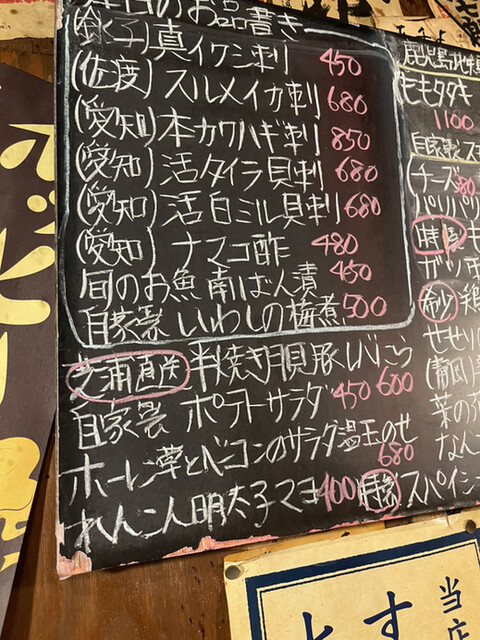 本日のお品書き
(銚子)真イワシ刺 450
(佐渡)スルメイカ刺 680
(愛知)本カワハギ刺 850
(愛知)活タイラ貝刺 680
(愛知)活白ミル貝刺 680
(愛知)ナマコ酢 480
旬のお魚南ばん漬 450
自家製いわしの梅煮 500
芝浦直送 半焼き 豚レバこう 600
自家製 ポテトサラダ 450
ホーレン草とベーコンのサラダ温玉のせ 680
れんこん明太子マヨ 400
鹿児島地
ももタタキ
1100
自家製ス
チーズ
パリパリ
ガツ
希少 鶏
せせり
(静岡)
菜の
なんこ
スパイシー
当店
す